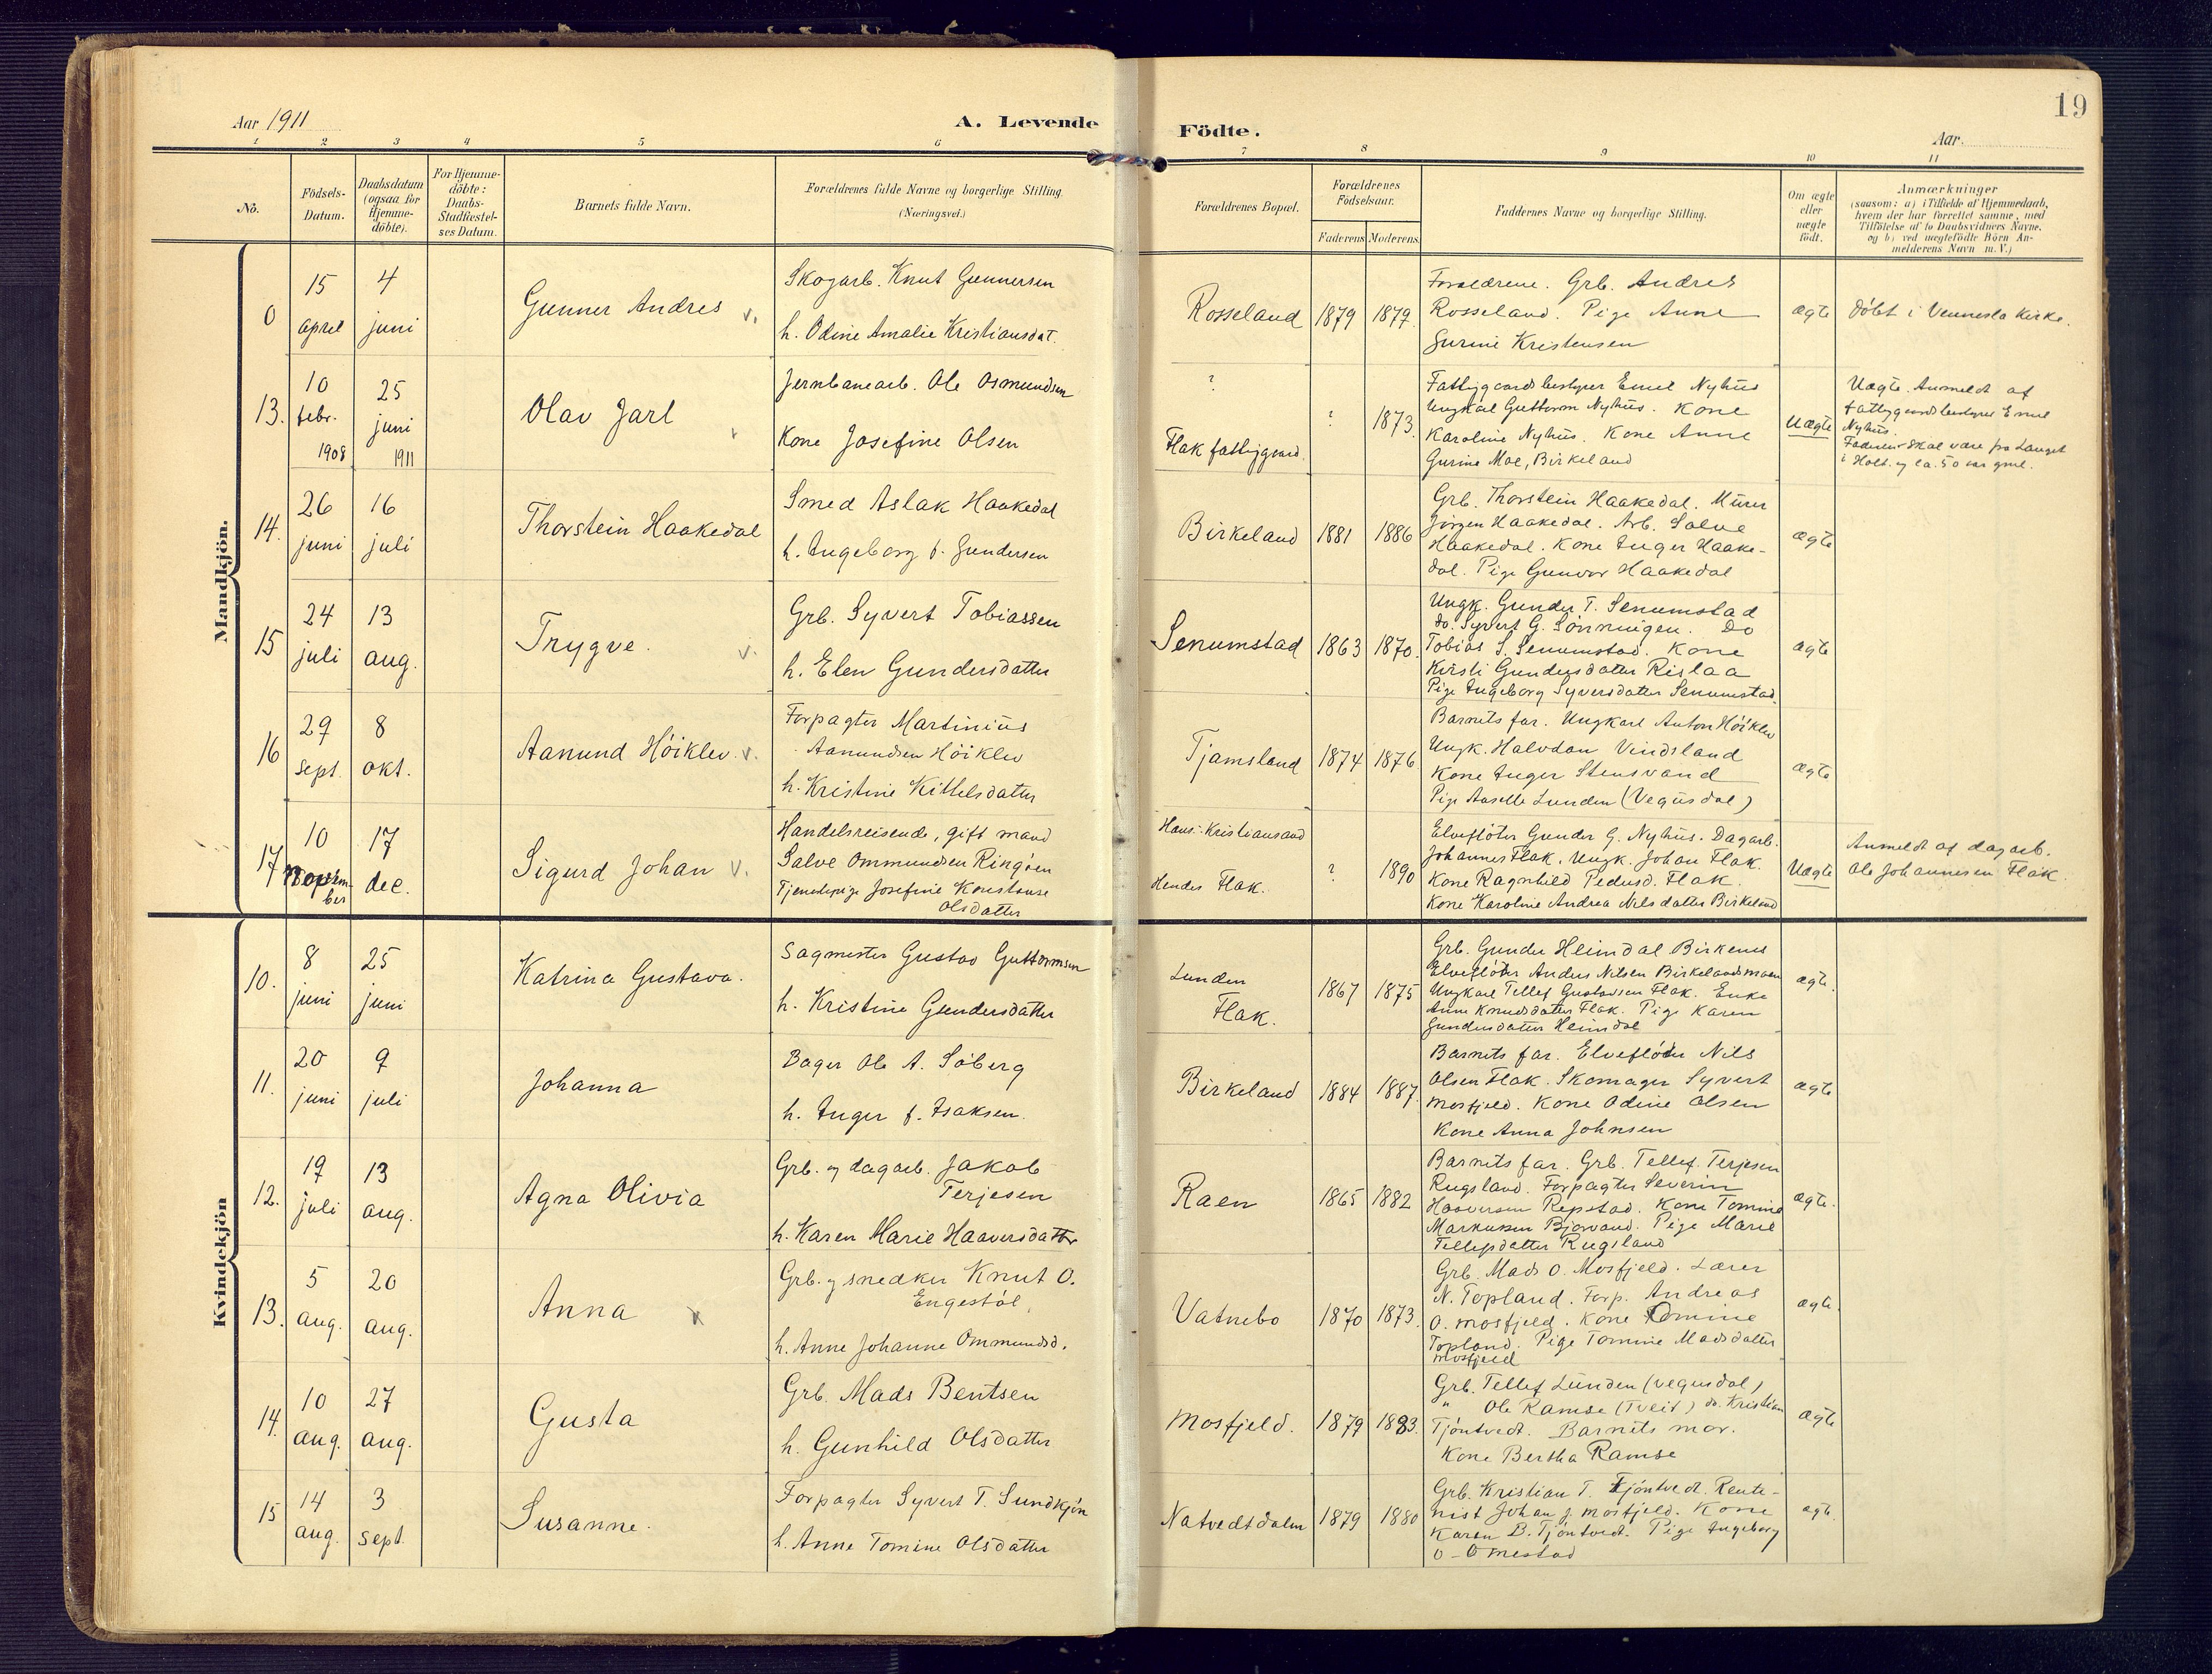 19
Aar 1911
A. Levende
Födte.
Aar.
1 2 3 4 5 6 7 8 9 10 11
No.
Födsels-
Datum.
Daabsdatum
(ogsaa for
Hjemme-
döbte).
For Hjemme-
döbte:
Daabs-
Stadfæstel-
ses Datum.
Barnets fulde Navn.
Forældrenes fulde Navne og borgerlige Stilling
(Næringsvei.)
Forældrenes Bopæl.
Forældrenes
Födselsaar.
Faderens
Moderens.
Faddernes Navne og borgerlige Stilling.
Om ægte
eller
uægte
födt.
Anmærkninger
(saasom: a) i Tilfælde af Hjemmedaab,
hvem der har forrettet samme, med
Tilföielse af to Daabsvidners Navne,
og b) ved uægtefödte Börn An-
melderens Navn m. V.)
Mandkjön.
0
15
april
4
juni
Gunner Andres v.
Skogarb. Knut Gunnersen
h. Odine Amalie Kristiansdat.
Rosseland
1879
1879.
Forældrene. Grb. Andres
Rosseland. Pige Anne
Gurine Kristensen
ægte
döbt i Vennesla Kirke.
13.
10
febr.
1908
25
juni
1911
Olav Jarl
Jernbanearb. Ole Osmundsen
Kone Josefine Olsen
?
Flak fattiggaard.
?
1873.
Fattiggaardsbestyrer Emil Nyhus
Ungkarl Guttorm Nyhus. Kone
Karoline Nyhus. Kone Anne
Gurine Moe, Birkeland
Uægte
Uægte. Anmeldt af
fattiggaardsbestyrer Emil
Nyhus.
Faderen skal være fra Langet
i Holt. og ca. 50 aar gml.
14.
26
juni
16
juli
Thorstein Haakedal
Smed Aslak Haakedal
h. Ingeborg f. Gundersen
Birkeland
1881
1886
Grb. Thorstein Haakedal. Murer
Jörgen Haakedal. Arb. Salve
Haakedal. Kone Inger Haake-
dal. Pige Gunvor Haakedal
ægte
15
24
juli
13
aug.
Trygve. v.
Grb. Syvert Tobiassen
h. Elen Gundersdatter
Senumstad
1863
1870.
Ungk. Gunder T. Senumstad
do. Syvert G. Sönningen. Do
Tobias S. Senumstad. Kone
Kirsti Gundersdatter Rislaa
Pige Ingeborg Syversdatter Senumstad.
ægte
16
29
sept.
8
okt.
Aanund Höiklev. v.
Forpagter Martinius
Aanundsen Höiklev
h. Kristine Kittelsdatter
Tjamsland
1874
1876
Barnets far. Ungkarl Anton Höiklev
Ungk. Halvdan Vindsland
Kone Inger Stensvand
Pige Aaselle Lunden (Vegusdal)
ægte
17
10
Novem-
ber
17
dec.
Sigurd Johan v.
Handelsreisende, gift mand
Salve Ommundsen Ringöen
Tjenestepige Josefine Konstanse
Olsdatter
Hans: Kristiansand
Hendes Flak.
?
1890
Elveflöter Gunder G. Nyhus. Dagarb.
Johannes Flak. Ungk. Johan Flak.
Kone Ragnhild Pedersd. Flak.
Kone Karoline Andrea Nilsdatter Birkeland
Uægte
Anmeldt af dagarb.
Ole Johannesen Flak.
Kvindekjön
10.
8
juni
25
juni
Katrina Gustava.
Sagmester Gustav Guttormsen
h. Kristine Gundersdatter
Lunden
Flak.
1867
1875
Grb. Gunder Heimdal Birkenes
Elveflöter Anders Nilsen Birkelandsmoen
Ungkarl Tellef Gustavsen Flak. Enke
Anne Knudsdatter Flak. Pige Karen
Gundersdatter Heimdal
ægte.
11.
20
juni
9
juli
Johanna
Bager Ole A. Söberg
h. Inger f. Isaksen.
Birkeland
1884
1887.
Barnets far. Elveflöter Nils
Olsen Flak. Skomager Syvert
Mosfjeld. Kone Odine Olsen
Kone Anna Johnsen
ægte
12.
19
juli
13
aug.
Agna Olivia
Grb. og dagarb. Jakob
Terjesen
h. Karen Marie Haaversdatter
Raen
1865
1882
Barnets far. Grb. Tellef Terjesen
Rugsland. Forpagter Severin
Haaversen Repstad. Kone Tomine
Markussen Bjorvand. Pige Marie
Tellefsdatter Rugsland
ægte.
13.
5
aug.
20
aug.
Anna
Grb. og snedker Knut O.
Engestöl.
h. Anne Johanne Ommundsd.
Vatnebo
1870
1873.
Grb. Mads O. Mosfjeld. Lærer
N. Topland. Forp. Andreas
O. Mosfjeld. Kone Omine
Topland. Pige Tomine Madsdatter
Mosfjeld
ægte.
14.
10
aug.
27
aug.
Gusta
Grb. Mads Bentsen
h. Gunhild Olsdatter
Mosfjeld.
1879
1883.
Grb. Tellef Lunden (Vegusdal)
" Ole Ramse (Tveit) do. Kristian
Tjöntvedt. Barnets mor.
Kone Bertha Ramse
ægte
15
14
aug.
3
sept.
Susanne.
Forpagter Syvert T. Sundkjön
h. Anne Tomine Olsdatter
Natvedtdalen
1879
1880
Grb. Kristian T. Tjöntvedt. Rente-
nist Johan J. Mosfjeld. Kone
Karen B. Tjöntvedt. Pige Ingeborg
O Omestad
ægte.